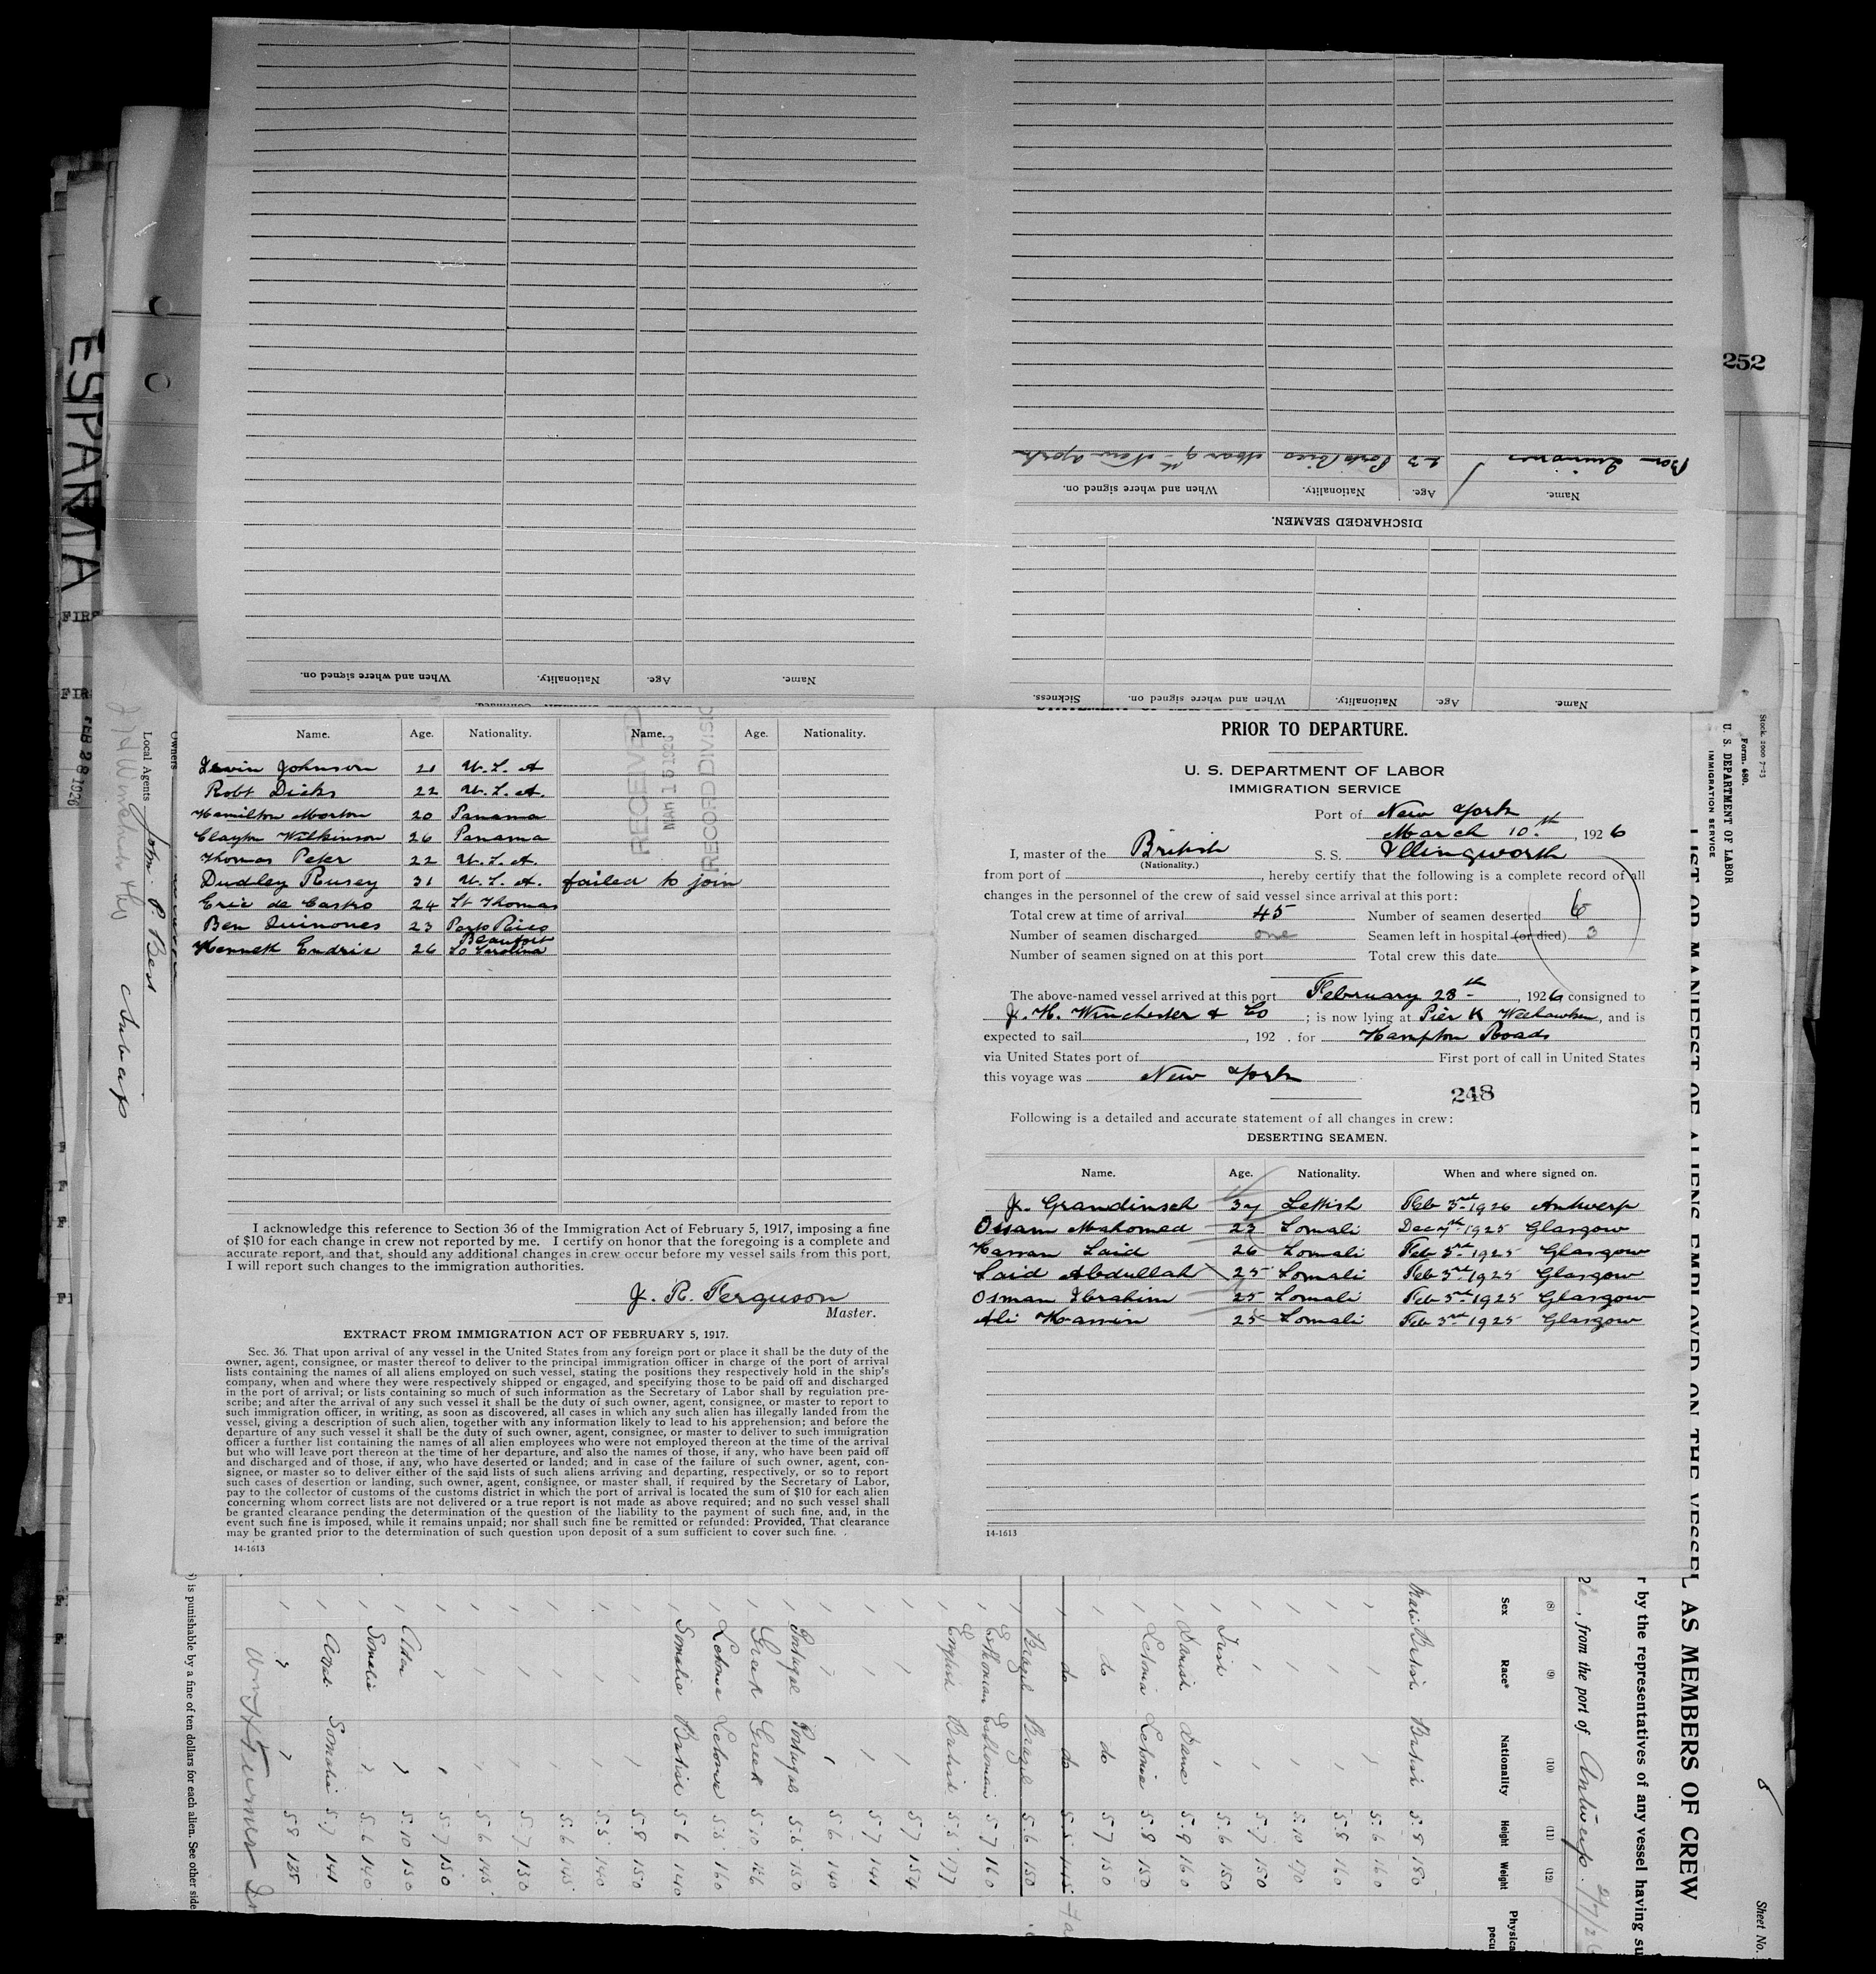 Name. Age. Nationality. When and where signed on.
Sickness. When and where signed on. Nationality. Age. Name.
DISCHARGED SEAMEN.
Name. Age. Nationality. When and where signed on.
Ben Quinones 23 Porto Rico Mar 9th New York
252
ESPARTA
FEB 28 1926
Owners
Local Agents
John. P. Best
Antwerp
J H Winchester & Co
Name. Age. Nationality. Name. Age. Nationality.
RECEIVED
MAR 15 1926
RECORD DIVISIO
Levin Johnson 21 U.S.A
Robt Dicks 22 U.S.A.
Hamilton Morton 20 Panama
Clayton Wilkinson 26 Panama
Thomas Peter 22 U.S.A.
Dudley Rusey 31 U.S.A. failed to join
Eric de Castro 24 St Thomas
Ben Quinones 23 Porto Rico
Kenneth Endric 26 Beaufort So Carolina
I acknowledge this reference to Section 36 of the Immigration Act of February 5, 1917, imposing a fine
of $10 for each change in crew not reported by me. I certify on honor that the foregoing is a complete and
accurate report, and that, should any additional changes in crew occur before my vessel sails from this port,
I will report such changes to the immigration authorities.
J. R. Ferguson
Master.
EXTRACT FROM IMMIGRATION ACT OF FEBRUARY 5, 1917.
Sec. 36. That upon arrival of any vessel in the United States from any foreign port or place it shall be the duty of the
owner, agent, consignee, or master thereof to deliver to the principal immigration officer in charge of the port of arrival
lists containing the names of all aliens employed on such vessel, stating the positions they respectively hold in the ship's
company, when and where they were respectively shipped or engaged, and specifying those to be paid off and discharged
in the port of arrival; or lists containing so much of such information as the Secretary of Labor shall by regulation pre-
scribe; and after the arrival of any such vessel it shall be the duty of such owner, agent, consignee, or master to report to
such immigration officer, in writing, as soon as discovered, all cases in which any such alien has illegally landed from the
vessel, giving a description of such alien, together with any information likely to lead to his apprehension; and before the
departure of any such vessel it shall be the duty of such owner, agent, consignee, or master to deliver to such immigration
officer a further list containing the names of all alien employees who were not employed thereon at the time of the arrival
but who will leave port thereon at the time of her departure, and also the names of those, if any, who have been paid off
and discharged and of those, if any, who have deserted or landed; and in case of the failure of such owner, agent, con-
signee, or master so to deliver either of the said lists of such aliens arriving and departing, respectively, or so to report
such cases of desertion or landing, such owner, agent, consignee, or master shall, if required by the Secretary of Labor,
pay to the collector of customs of the customs district in which the port of arrival is located the sum of $10 for each alien
concerning whom correct lists are not delivered or a true report is not made as above required; and no such vessel shall
be granted clearance pending the determination of the question of the liability to the payment of such fine, and, in the
event such fine is imposed, while it remains unpaid; nor shall such fine be remitted or refunded: Provided, That clearance
may be granted prior to the determination of such question upon deposit of a sum sufficient to cover such fine.
14-1613
PRIOR TO DEPARTURE.
U. S. DEPARTMENT OF LABOR
IMMIGRATION SERVICE
Port of New York
March 10.th, 1926
I, master of the British S. S. Illingworth
(Nationality.)
from port of , hereby certify that the following is a complete record of all
changes in the personnel of the crew of said vessel since arrival at this port:
Total crew at time of arrival 45 Number of seamen deserted 6
Number of seamen discharged one Seamen left in hospital (or died) 3
Number of seamen signed on at this port Total crew this date
The above-named vessel arrived at this port February 28th, 1926 consigned to
J. H. Winchester & Co ; is now lying at Pier K Weehawken, and is
expected to sail , 192 . for Hampton Roads
via United States port of First port of call in United States
this voyage was New York
248
Following is a detailed and accurate statement of all changes in crew:
DESERTING SEAMEN.
Name. Age. Nationality. When and where signed on.
J. Grandinsch 37 Lettish Feb 3rd 1926 Antwerp
Ossam Mahomed 23 Somali Dec 7th 1925 Glasgow
Hassan Said 26 Somali Feb 3rd 1925 Glasgow
Said Abdullah 25 Somali Feb 3rd 1925 Glasgow
Osman Ibrahim 25 Somali Feb 3rd 1925 Glasgow
Ali Hassin 25 Somali Feb 3rd 1925 Glasgow
14-1613
Stock. 2000 7-23
Form. 680.
U. S. DEPARTMENT OF LABOR
IMMIGRATION SERVICE
LIST OR MANIFEST OF ALIENS EMPLOYED ON THE VESSEL AS MEMBERS OF CREW
r by the representatives of any vessel having su
, from the port of Antwerp.
Sheet No.
(8) (9) (10) (11) (12)
Sex Race* Nationality Height Weight Physica
pecu
British British 5.8 180
5.6 160
5.8 160
5.10 170
5.7 150
Irish 5.6 150
Danish Dane 5.9 160
Letonia Letonia 5.8 150
do do 5.7 150
do do
Brazil Brazil 5.6 150
Esthonian Esthonian 5.7 160
English British 5.5 177
5.7 154
5.7 144
5.6 140
Portugal Portugal 5.5 150
Greek Greek 5.10 166
Letonia Letonia 5.5 160
Somalia British 5.6 140
5.8 150
5.5 140
5.6 145
5.7 130
5.6 145
5.7 150
Aden 5.10 150
Somalia 5.6 140
Arab Somalia 5.7 144
5.8 138
) is punishable by a fine of ten dollars for each alien. See other side